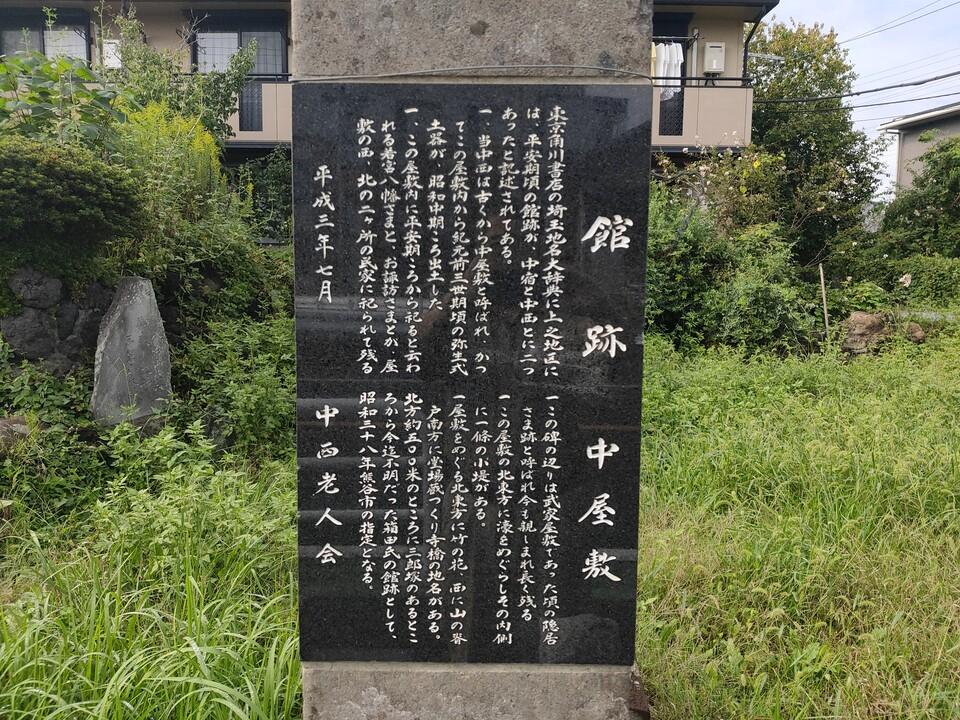 館跡 中屋敷
東京角川書店の埼玉地名大辞典に上之地区に
は、平安期頃の館跡が、中宿と中西とに二つ
あったと記述されてある。
一 当中西は古くから中屋敷と呼ばれ、かつ
てこの屋敷内から紀元前三世期頃の弥生式
土器が、昭和中期ころ出土した
一 この屋敷内に平安期ころから祀ると云わ
れる若宮八幡さまと、お諏訪さまとが、屋
敷の西、北の二ヶ所の民家に祀られて残る
一この碑の辺りは武家屋敷であった頃の隠居
さま跡と呼ばれ今も親しまれ長く残る
一この屋敷の北東方に濠をめぐらしその内側
に一條の小堤がある。
一屋敷をめぐる北東方に竹の花、西に山の脊
戸南方に堂場蔵つくり寺橋の地名がある。
北方約五〇〇米のところに三郎塚のあるとこ
ろから今迄不明だった箱田氏の館跡として、
昭和三十八年熊谷市の指定となる。
平成三年七月
中西老人会